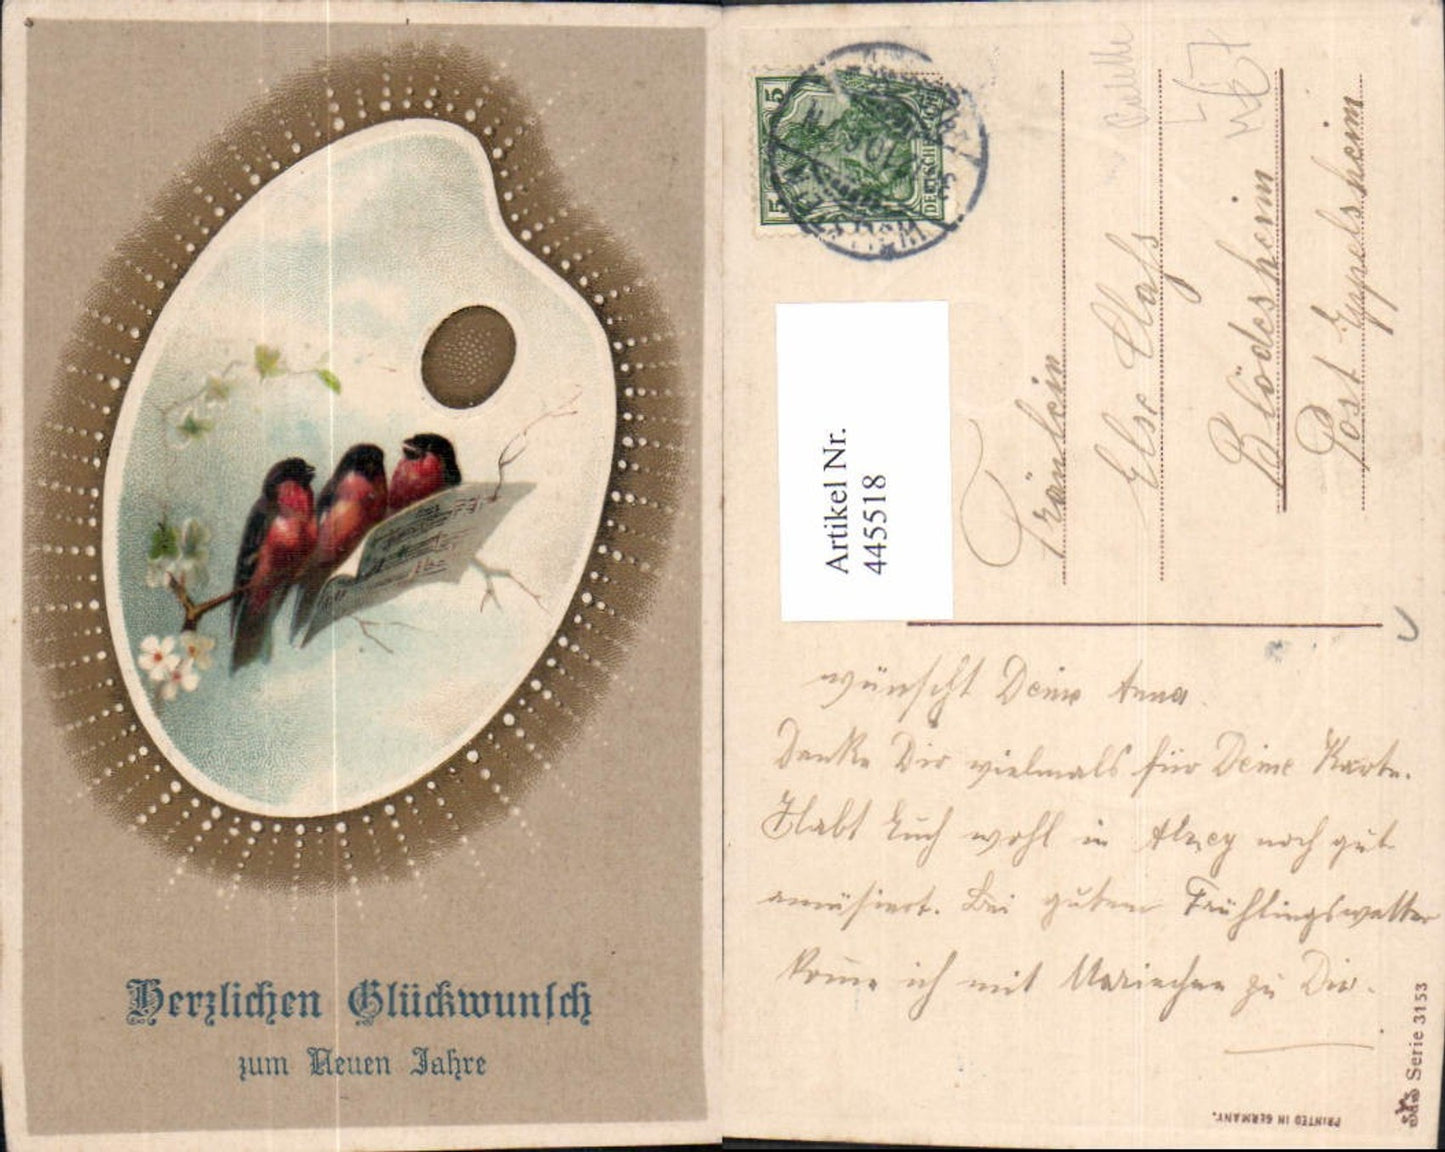 Herzlichen Glückwunsch
zum Neuen Jahre
5
5
DEUTSCHES
Artikel Nr.
445518
Palette
Fräulein
Else Claß
Blödesheim
Post Eppelsheim
wünscht Deine Anna.
Danke Dir vielmals für Deine Karte.
Habt Euch wohl in Alzey noch gut
amüsiert. Bei gutem Frühlingswetter
komme ich mit Mariechen zu Dir.
PRINTED IN GERMANY.
Serie 3153